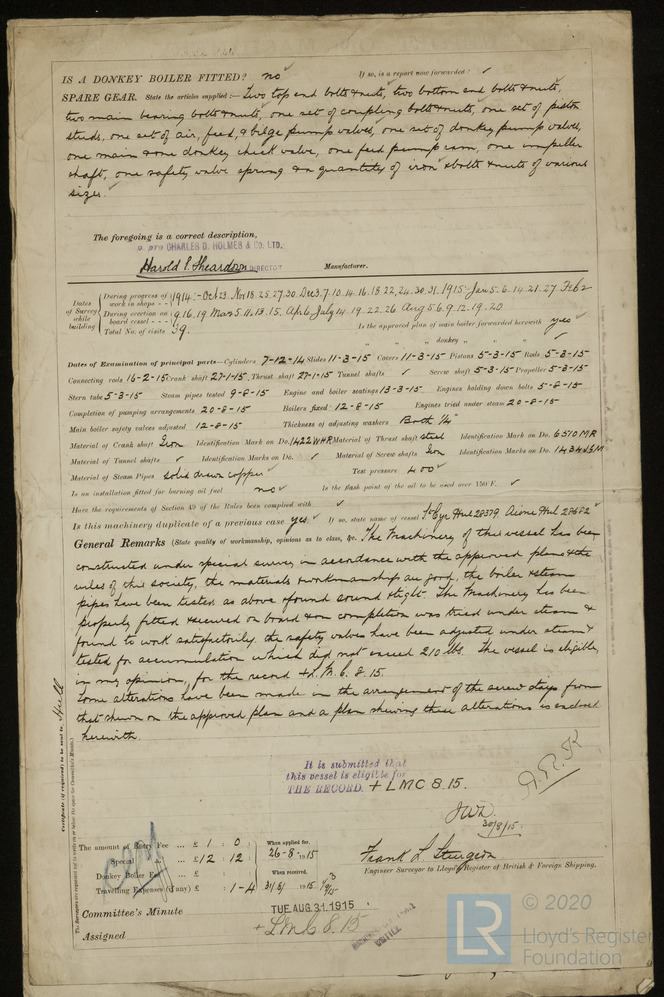 IS A DONKEY BOILER FITTED? no ✓ If so, is a report now forwarded? ✓
SPARE GEAR. State the articles supplied:— Two top end bolts & nuts, two bottom end bolts & nuts,
two main bearing bolts & nuts, one set of coupling bolts & nuts, one set of piston
studs, one set of air, feed, & bilge pump valves, one set of donkey pump valves,
one main & one donkey check valve, one feed pump ram, one impeller
shaft, one safety valve spring & a quantity of iron & bolts & nuts of various
sizes.
The foregoing is a correct description,
CHARLES D. HOLMES & CO. LTD.
Harold E. Sheardown DIRECTOR Manufacturer.
Dates of Survey while building
During progress of work in shops - - 1914:- Oct 23. Nov 18. 25. 27. 30. Dec 3. 7. 10. 14. 16. 18. 22. 24. 30. 31. 1915:- Jan 5. 6. 14. 21. 27. Feb 2
During erection on board vessel - - - 9. 16. 19. Mar 5. 11. 13. 15. Apr 6. July 14. 19. 22. 26 Aug 5. 6. 9. 12. 19. 20
Total No. of visits 39. Is the approved plan of main boiler forwarded herewith yes ✓
" " " donkey " " " ✓
Dates of Examination of principal parts—Cylinders 7-12-14 Slides 11-3-15 Covers 11-3-15 Pistons 5-3-15 Rods 5-3-15
Connecting rods 16-2-15 Crank shaft 27-1-15 Thrust shaft 27-1-15 Tunnel shafts ✓ Screw shaft 5-3-15 Propeller 5-3-15
Stern tube 5-3-15 Steam pipes tested 9-8-15 Engine and boiler seatings 13-3-15 Engines holding down bolts 5-8-15
Completion of pumping arrangements 20-8-15 Boilers fixed 12-8-15 Engines tried under steam 20-8-15
Main boiler safety valves adjusted 12-8-15 Thickness of adjusting washers Both 1/4"
Material of Crank shaft Iron Identification Mark on Do. 1422WHR Material of Thrust shaft steel Identification Mark on Do. 6570MR
Material of Tunnel shafts ✓ Identification Marks on Do. ✓ Material of Screw shafts Iron Identification Marks on Do.
Material of Steam Pipes solid drawn copper ✓ Test pressure 400
Is an installation fitted for burning oil fuel no ✓ Is the flash point of the oil to be used over 150°F. ✓
Have the requirements of Section 49 of the Rules been complied with ✓
Is this machinery duplicate of a previous case yes. ✓ If so, state name of vessel Hull 28379. Hull 28682
General Remarks (State quality of workmanship, opinions as to class, &c. The Machinery of this vessel has been
constructed under special survey in accordance with the approved plans & the
rules of this society, the materials & workmanship are good, the boiler & steam
pipes have been tested as above & found sound & tight. The Machinery has been
properly fitted & secured on board & on completion was tried under steam &
found to work satisfactorily. the safety valves have been adjusted under steam &
tested for accumulation which did not exceed 210 lbs. The vessel is eligible,
in my opinion, for the record + L.M.C. 8. 15.
Some alterations have been made in the arrangement of the screw stays from
that shewn on the approved plan and a plan shewing these alterations is enclosed
herewith.
Certificate (if required) to be sent to Hull
It is submitted that
this vessel is eligible for
THE RECORD. + LMC 8.15.
30/8/15.
The amount of Entry Fee ... £ 1 : 0 : When applied for,
Special ... £ 12 : 12 : 26-8-1915
Donkey Boiler Fee ... £ : : When received,
Travelling Expenses (if any) £ : 1-4 31/8/1915
Frank L. Sturgeon
Engineer Surveyor to Lloyd's Register of British & Foreign Shipping.
Committee's Minute TUE. AUG. 31. 1915
Assigned + LMC 8. 15
© 2020
LR
Lloyd's Register
Foundation